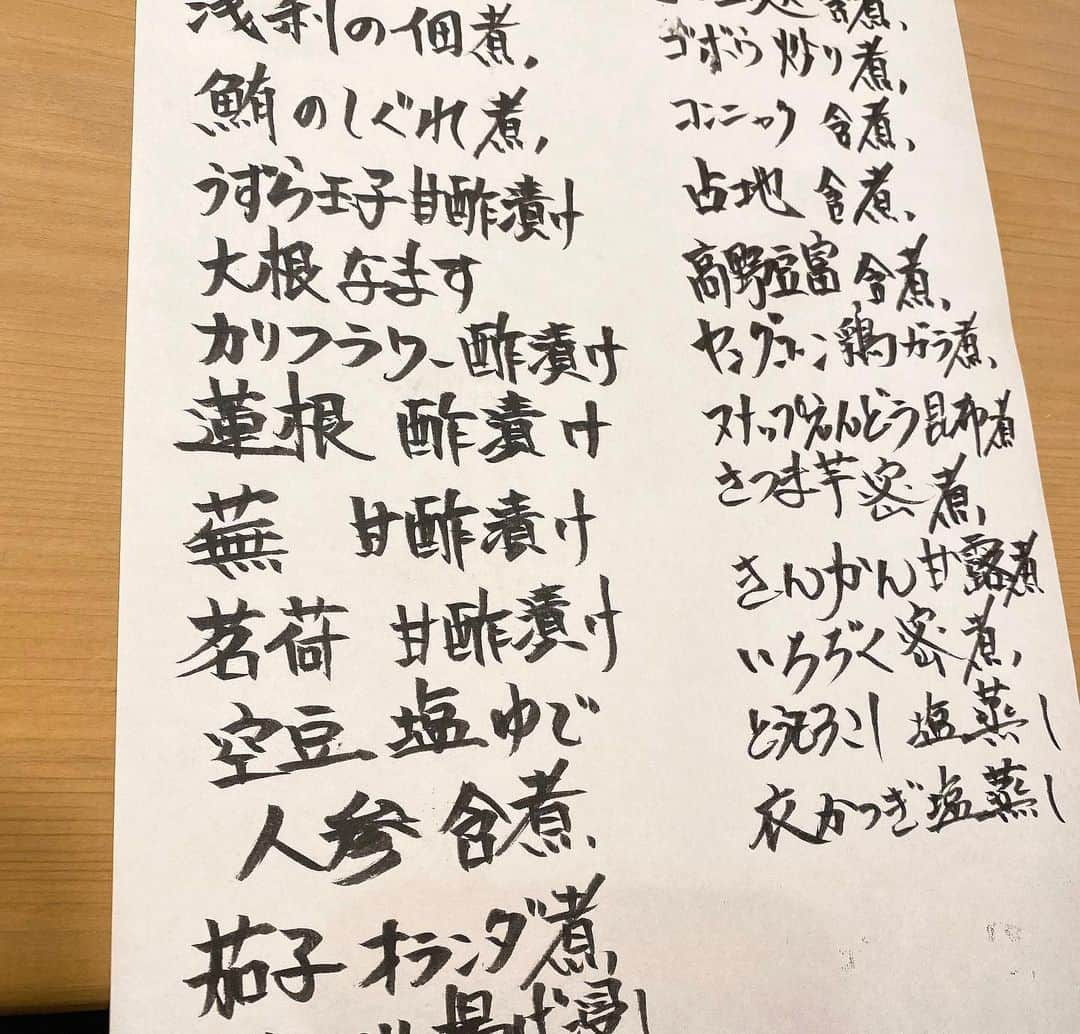 浅利の佃煮
鮪のしぐれ煮
うずら玉子甘酢漬け
大根なます
カリフラワー酢漬け
蓮根 酢漬け
蕪 甘酢漬け
茗荷 甘酢漬け
空豆塩ゆで
人参 含煮
茄子 オランダ煮
揚げ浸し
含煮
ゴボウ炒り煮
コンニャク 含煮
占地 含煮
高野豆富 含煮
ヤングコーン鶏ガラ煮
スナップえんどう昆布煮
さつま芋密煮
きんかん甘露煮
いちぢく密煮
とうもろこし 塩蒸し
衣かつぎ塩蒸し